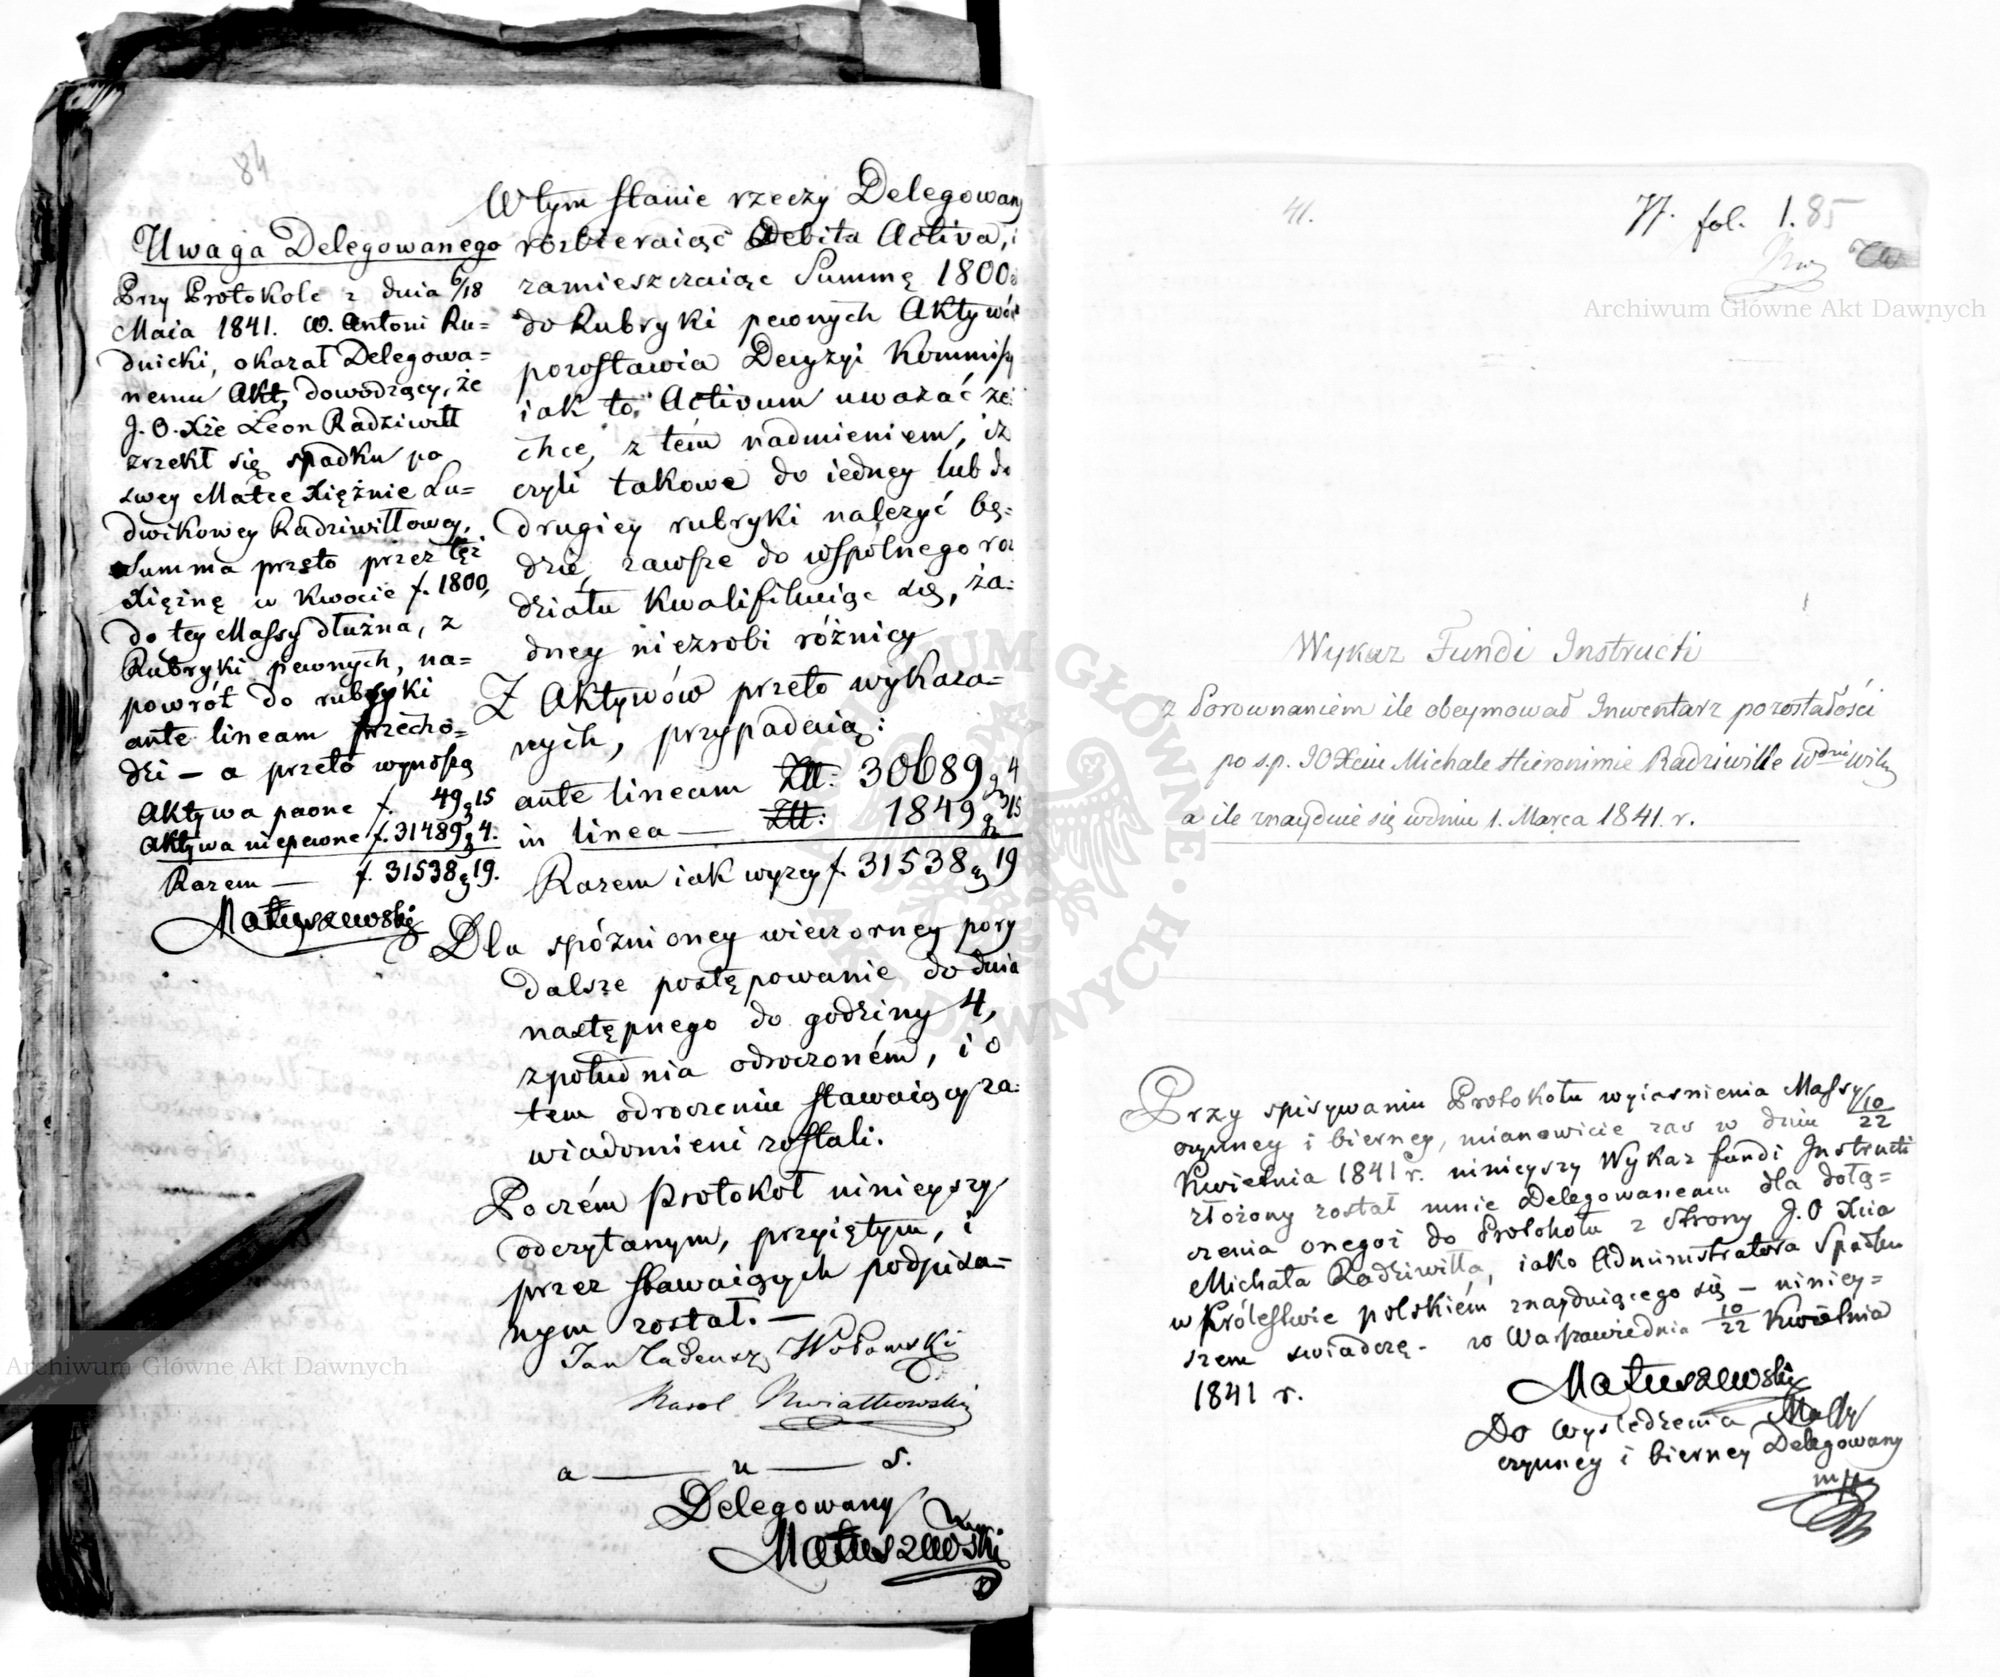 84
Uwaga Delegowanego
Przy Protokole z dnia 6/18
Maia 1841. W. Antoni Ru=
dnicki, okazał Delegowa=
nemu Akt, dowodzący, że
J. O. Xże Leon Radziwiłł
zrzekł się spadku po
swey Matce Xiężnie Lu=
dwikowey Radziwiłłowey,
Summa przeto przez tęż
Xiężnę w kwocie f. 1800,
do tey Massy dłużna, z
Rubryki pewnych, na=
powrót do rubryki
ante lineam przecho=
dzi — a przeto wynoszą
Aktywa pewne f. 49 g 15
Aktywa niepewne f. 31489 g 4.
Razem — f. 31538 g 19.
Matuszewski
W tym stanie rzeczy Delegowany
rozbieraiąc Debita Activa, i
zamieszczaiąc Summę 1800
do Rubryki pewnych Aktywów
pozostawia Decyzyi Kommissyi
iak to Activum uważać ze=
chce, z tém nadmieniem, iż
czyli takowe do iedney lub do
drugiey rubryki należyć bę=
dzie, zawsze do wspólnego roz
działu kwalifikuiąc się, ża=
dney niezrobi różnicy
Z Aktywów przeto wykaza=
nych, przypadaią:
ante lineam Złł: 30689 g 4
in linea — Złł: 1849 g 15
Razem iak wyżey f. 31538 g 19
Dla spóźnioney wieczorney pory
dalsze postępowanie do dnia
następnego do godziny 4,
z południa odroczoném, i o
tem odroczeniu stawaiący za=
wiadomieni zostali.
Poczém Protokół ninieyszy
odczytanym, przyiętym, i
przez stawaiących podpisa=
nym został. —
Jan Tadeusz Wołowski
Karol Kwiatkowski
a — u — s.
Delegowany
Matuszewski
41.
77. fol. 1. 85
Wykaz Fundi Instructi
z Porownaniem ile obeymował Inwentarz pozostałości
po ś.p. JO Xciu Michale Hieronimie Radziwille
a ile znayduie się w dniu 1. Marca 1841. r.
Przy spisywaniu Protokołu wyiasnienia Massy
czynney i bierney, mianowicie zas w dniu 10/22
Kwietnia 1841 r. ninieyszy Wykaz fundi Instructi
złożony został mnie Delegowanemu dla dołą=
czenia onegoż do Protokołu z strony J. O Xcia
Michała Radziwiłła, iako Administratora Spadku
w Królestwie polskiém znayduiącego się — niniey=
szem swiadczę. w Warszawie dnia 10/22 Kwietnia
1841 r.
Matuszewski
Do wysledzenia Massy
czynney i bierney Delegowany
Archiwum Główne Akt Dawnych
Archiwum Główne Akt Dawnych
ARCHIWUM GŁÓWNE AKT DAWNYCH